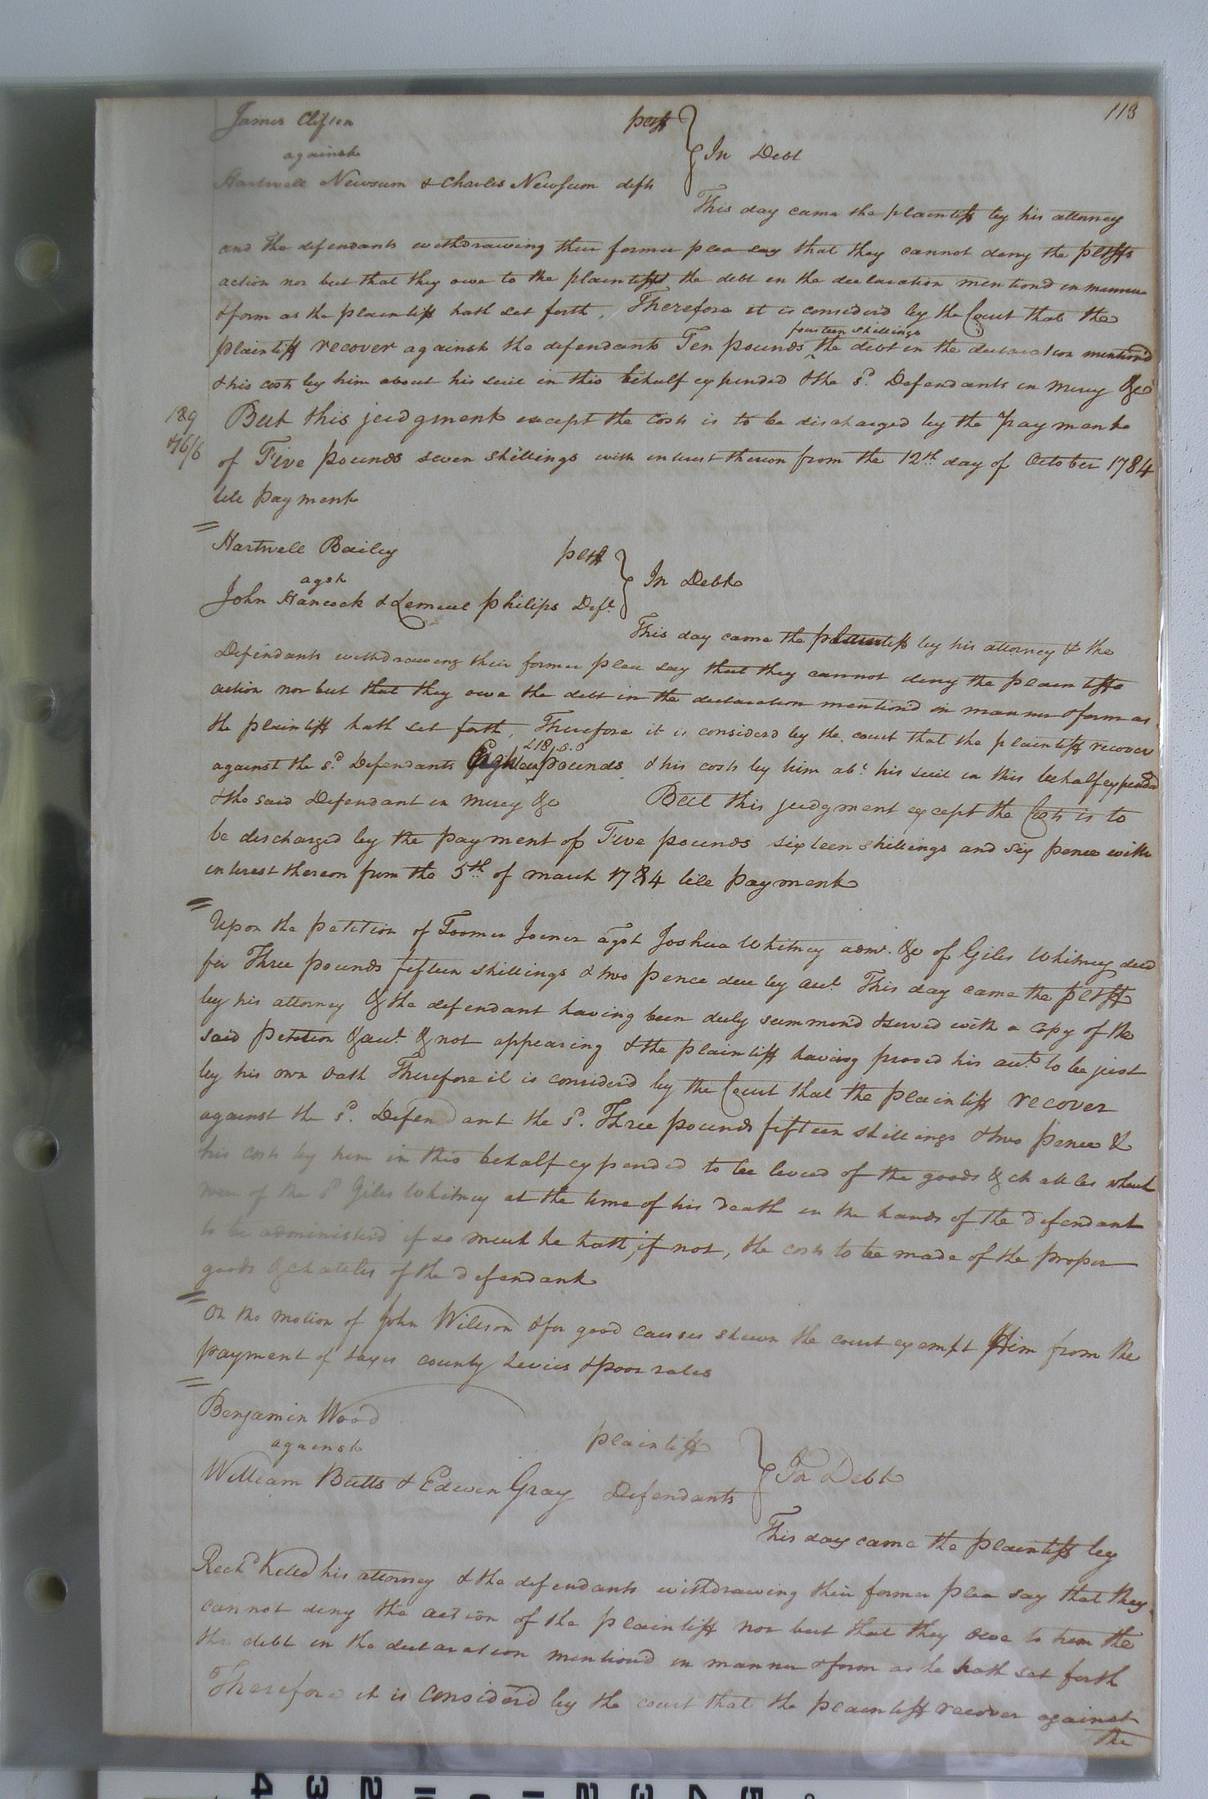 113
James Clifton pltff
against } In Debt
Hartwell Newsum & Charles Newsum defts
This day came the plaintiff by his attorney
and the defendants withdrawing their former plea say that they cannot deny the pltffs
action nor but that they owe to the plaintiff the debt in the declaration mentiond in manner
& form as the plaintiff hath set forth, Therefore it is considerd by the Court that the
fourteen shillings
plaintiff recover against the defendants Ten pounds ^ the debt in the declaration mentiond
& his costs by him about his suit in this behalf expended & the sd. Defendants in mercy &c
189 But this judgment except the costs is to be discharged by the payment
of Five pounds seven shillings with interest thereon from the 12th day of October 1784
till payment
Hartwell Bailey pltff
agst } In Debt
John Hancock & Lemuel philips Deft.
This day came the plaintiff by his attorney & the
Defendants withdrawing their former plea say that they cannot deny the plaintiffs
action nor but that they owe the debt in the declaration mentiond in manner & form as
the plaintiff hath set forth, Therefore it is considerd by the court that the plaintiff recover
against the sd. Defendants pounds & his costs by him abt. his suit in this behalf expended
& the said Defendant in mercy &c But this judgment except the Costs is to
be discharged by the payment of Five pounds sixteen shillings and six pence with
interest thereon from the 5th of march 1784 till payment
Upon the petition of Toomer Joiner agst Joshua Whitney adm. &c of Giles Whitney decd
for Three pounds fifteen shillings & two pence due by acct. This day came the pltff
by his attorney & the defendant having been duly summond & served with a copy of the
said petition & acct. & not appearing & the plaintiff having proved his acct. to be just
by his own oath Therefore it is considerd by the Court that the plaintiff recover
against the sd. Defendant the sd. Three pounds fifteen shillings & two pence &
his costs by him in this behalf expended to be levied of the goods & chattles which
were of the sd Giles Whitney at the time of his death in the hands of the defendant
to be administerd if so much he hath, if not, the costs to be made of the proper
goods & chatels of the defendant
On the motion of John Willson & for good causes shewn the court exempt Him from the
payment of taxes county levies & poor rates
Benjamin Wood
against plaintiff } In Debt
William Butts & Edwin Gray Defendants
This day came the plaintiff by
Richd. Kello his attorney & the defendants withdrawing their former plea say that they
cannot deny the action of the plaintiff nor but that they owe to him the
the debt in the declaration mentiond in manner & form as he hath set forth
Therefore it is considerd by the court that the plaintiff recover against
the